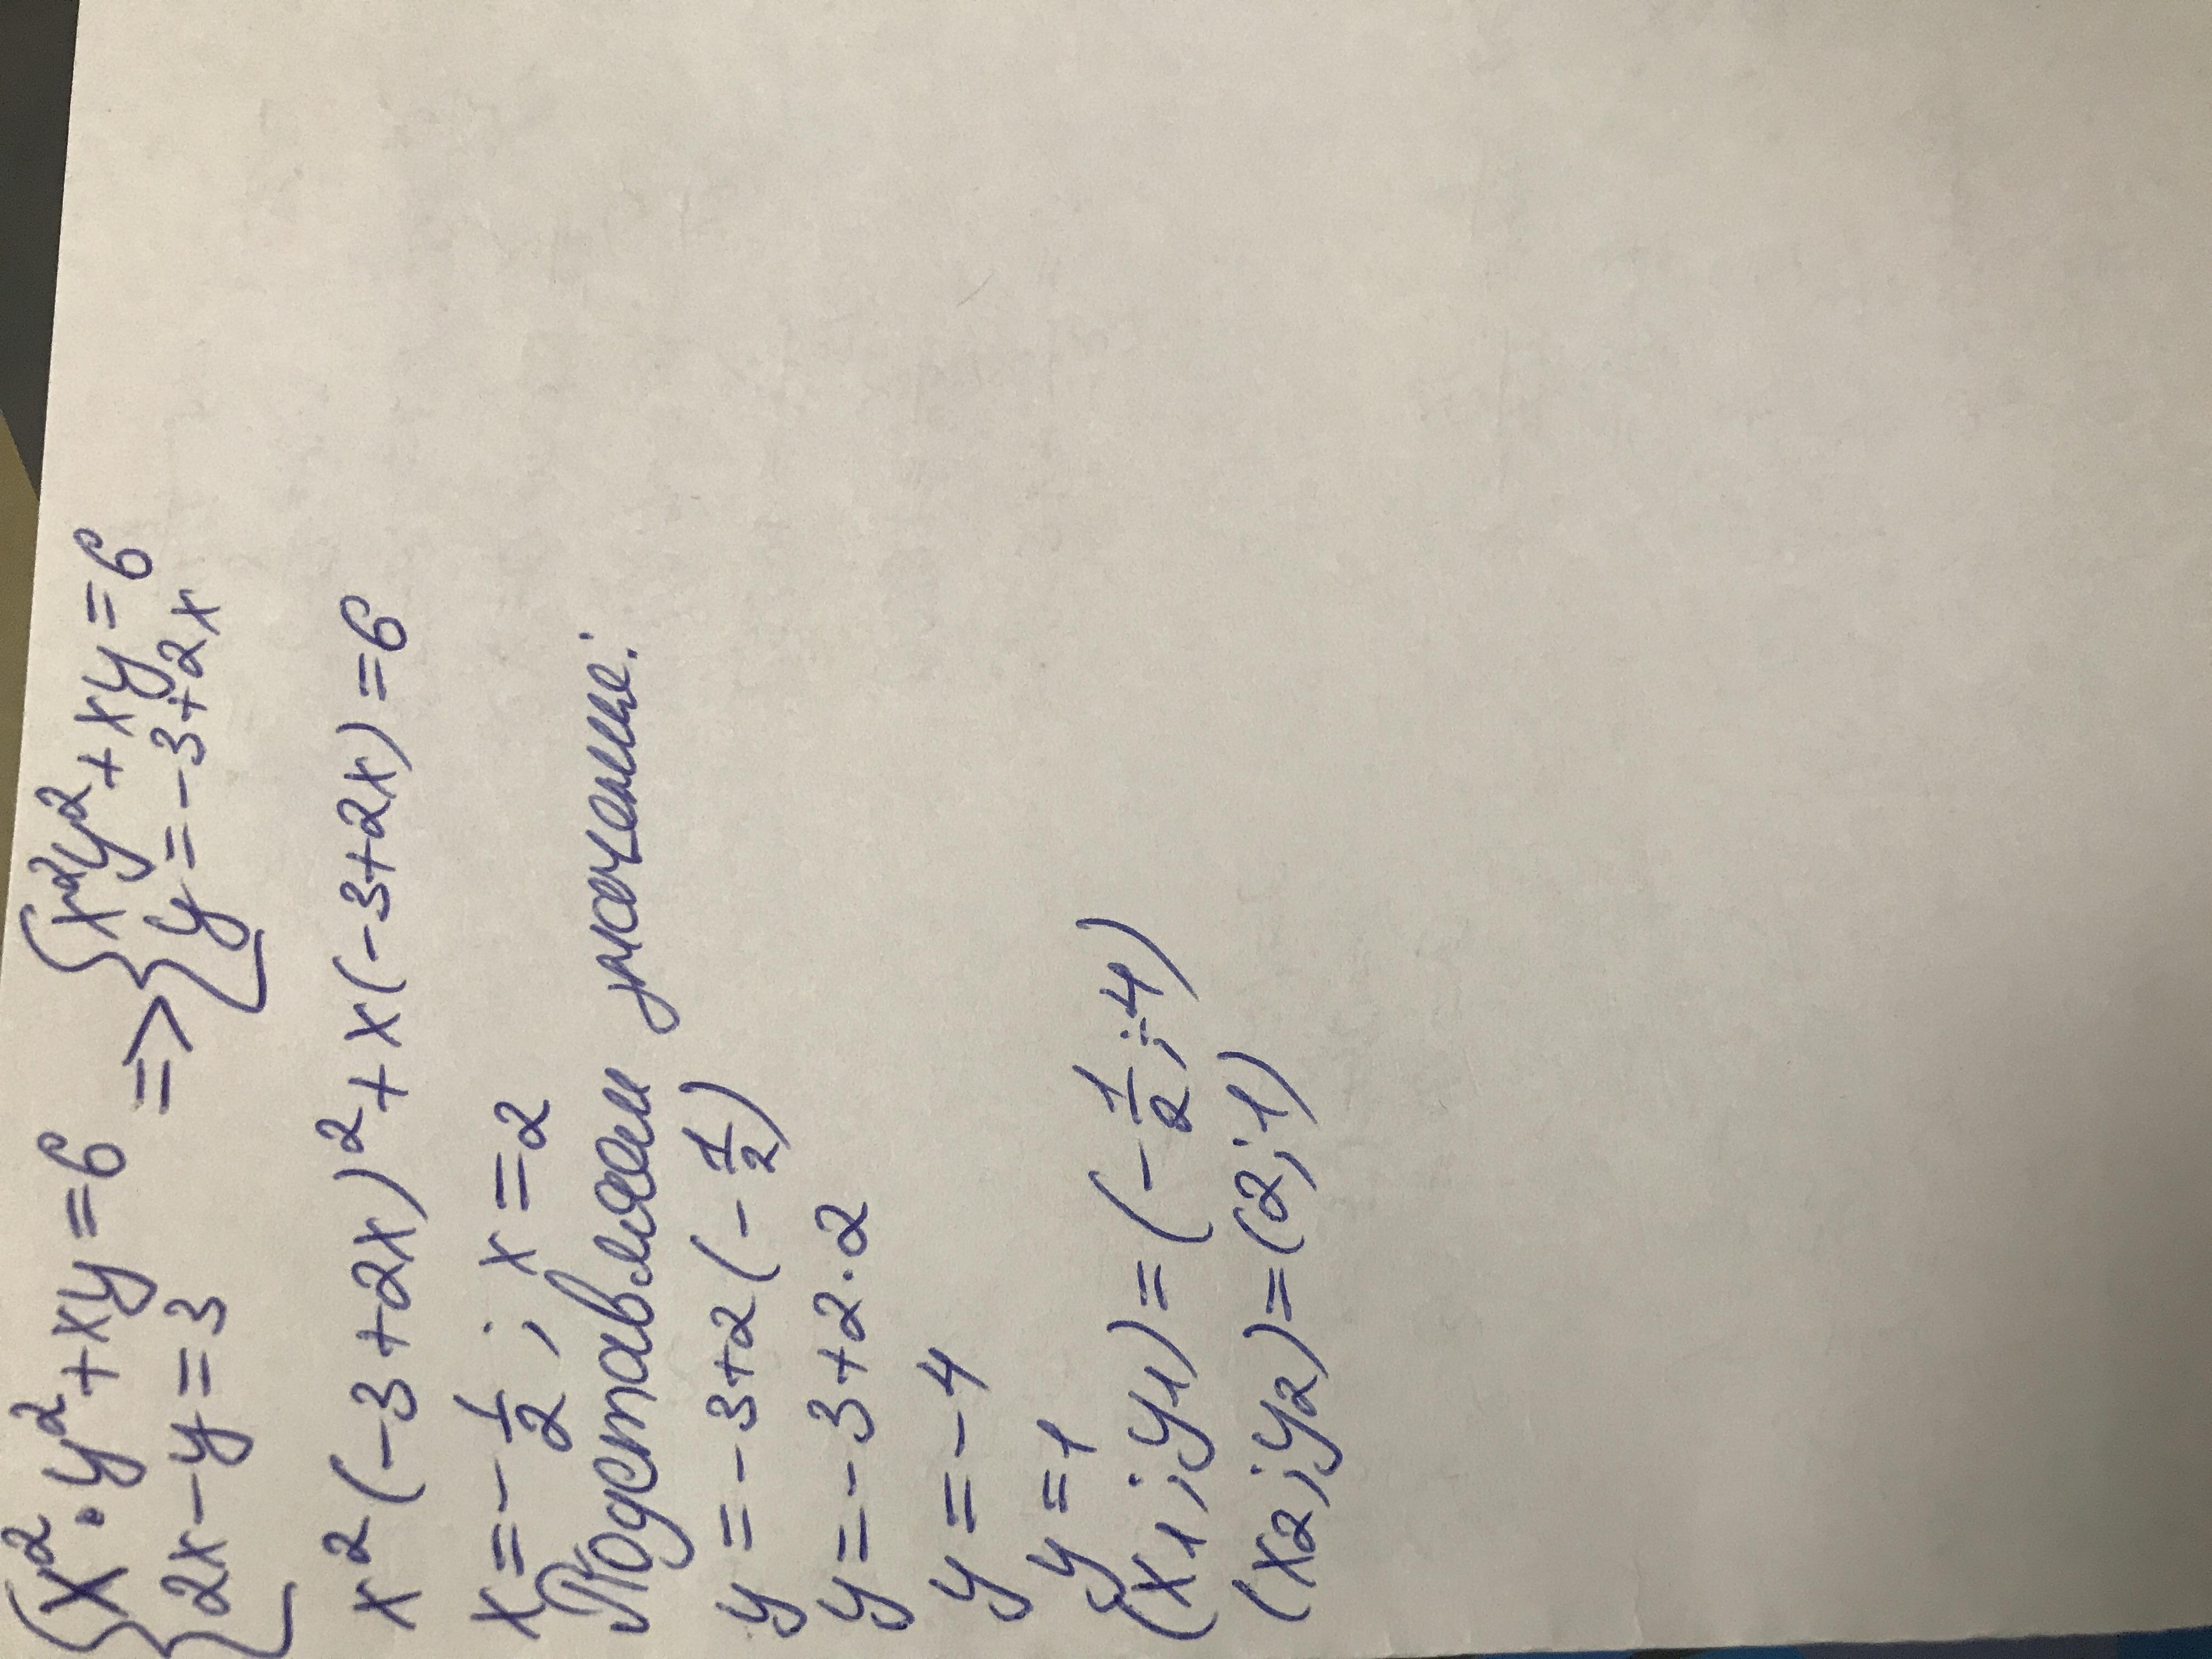 {x²·y²+xy=6 => {x²y²+xy=6
{2x-y=3 {y=-3+2x
x²(-3+2x)²+x(-3+2x)=6
x=-1/2; x=2
Подставляем значение:
y=-3+2(-1/2)
y=-3+2·2
y=-4
y=1
(x1;y1)=(-1/2;-4)
(x2;y2)=(2;1)